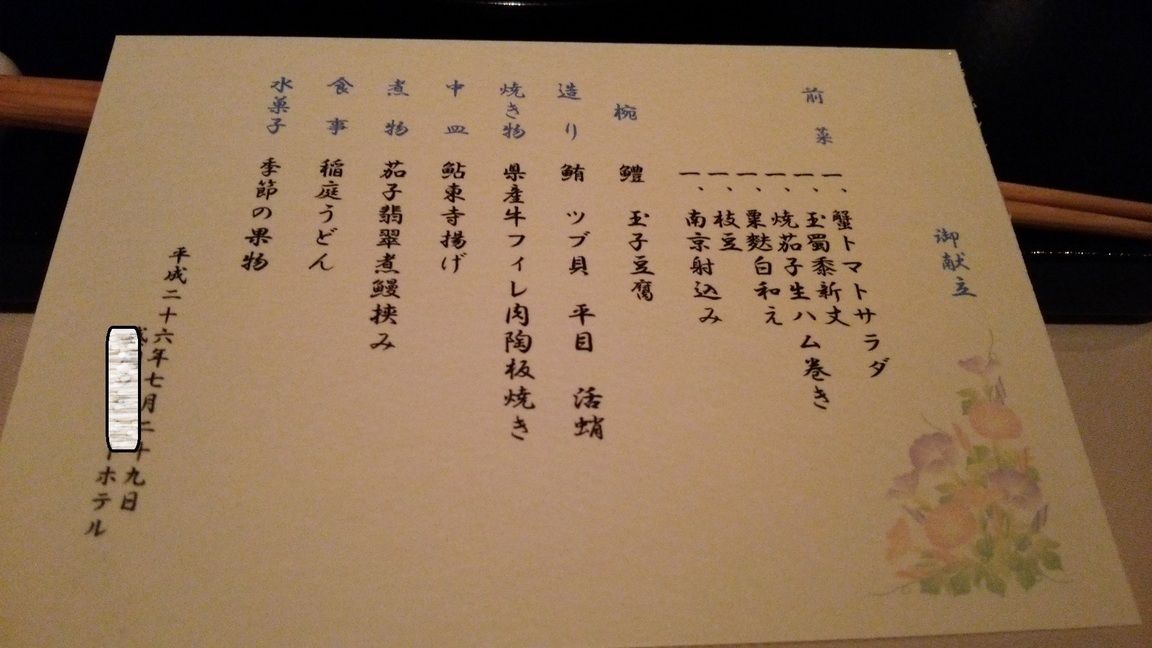 御献立
前菜
一、蟹トマトサラダ
一、玉蜀黍新丈
一、焼茄子生ハム巻き
一、粟麩白和え
一、枝豆
一、南京射込み
椀 鱧 玉子豆腐
造り 鮪 ツブ貝 平目 活蛸
焼き物 県産牛フィレ肉陶板焼き
中皿 鮎東寺揚げ
煮物 茄子翡翠煮鰻挟み
食事 稲庭うどん
水菓子 季節の果物
平成二十六年七月二十九日
ホテル